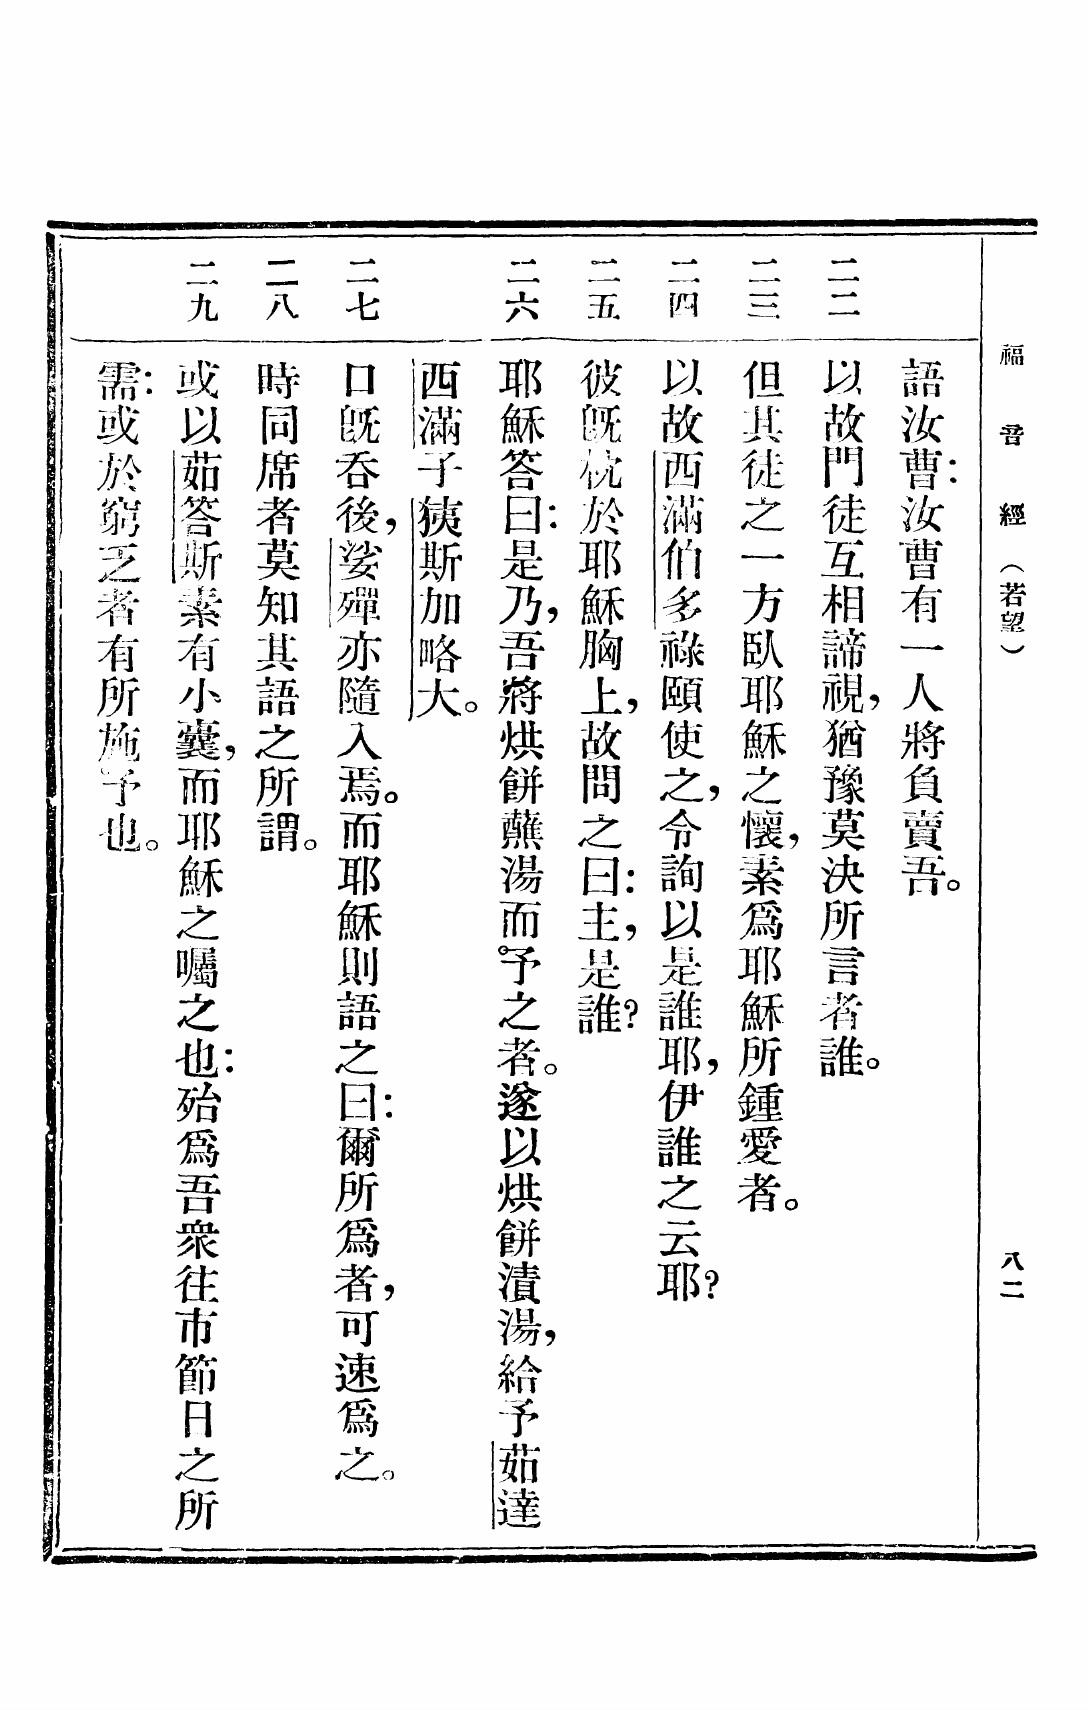 福音經（若望） 八二
語汝曹：汝曹有一人將負賣吾。
二二 以故門徒互相諦視，猶豫莫決所言者誰。
二三 但其徒之一方臥耶穌之懷，素爲耶穌所鍾愛者。
二四 以故西滿伯多祿頤使之，令詢以是誰耶，伊誰之云耶？
二五 彼旣枕於耶穌胸上，故問之曰：主，是誰？
二六 耶穌答曰：是乃，吾將烘餅蘸湯而予之者。遂以烘餅漬湯，給予茹達
西滿子㹫斯加略大。
二七 口旣呑後，娑殫亦隨入焉。而耶穌則語之曰：爾所爲者，可速爲之。
二八 時同席者莫知其語之所謂。
二九 或以茹答斯素有小囊，而耶穌之囑之也：殆爲吾衆往市節日之所
需：或於窮乏者有所施予也。